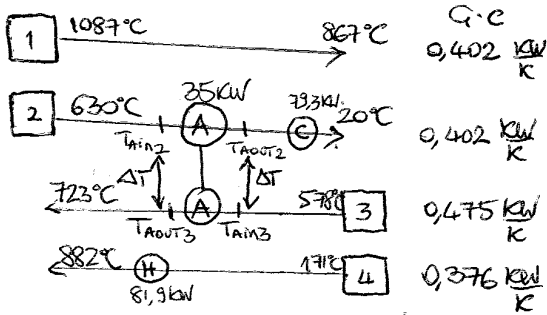 G·c
1 1087°C 867°C 0,402 KW/K
35KW
2 630°C A 79,3KW C 20°C 0,402 KW/K
TAin2 TAOUT2
ΔT ΔT
723°C A 578°C 3 0,475 KW/K
TAOUT3 TAin3
882°C H 171°C 4 0,376 KW/K
81,9KW